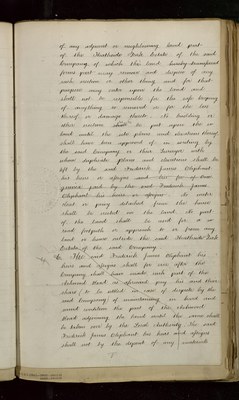 of any adjacent or neighbouring land part
of the Northside Park Estate of the said
Company of which the land hereby transferred
forms part may remove and dispose of any
such erection or other thing and for that
purpose may enter upon the land and
shall not be responsible for the safe keeping
of anything so removed or for the loss
thereof or damage thereto. No building or
other erection shall be put upon the
land until the site plans and elevations thereof
shall have been approved of in writing by
the said Company or their Surveyor with
whom duplicate plans and elevations shall be
left by the said Frederick James Oliphant
his heirs or assigns and
guineas paid by the said Frederick James
Oliphant his heirs or assigns. No water
closet or privy detached from the house
shall be erected on the land. No part
of the land shall be used for a
road footpath or approach to or from any
land or houses outside the said Northside Park
Estate of the said Company.
6. The said Frederick James Oliphant his
heirs and assigns shall for ever after the
Company shall have made such part of the
Road as aforesaid pay his and their
share (to be settled in case of dispute by the
said Company) of maintaining in good and
repair the part of the
Road adjoining the land until the same shall
be taken over by the Local Authority. The said
Frederick James Oliphant his heirs and assigns
shall not by the deposit of any